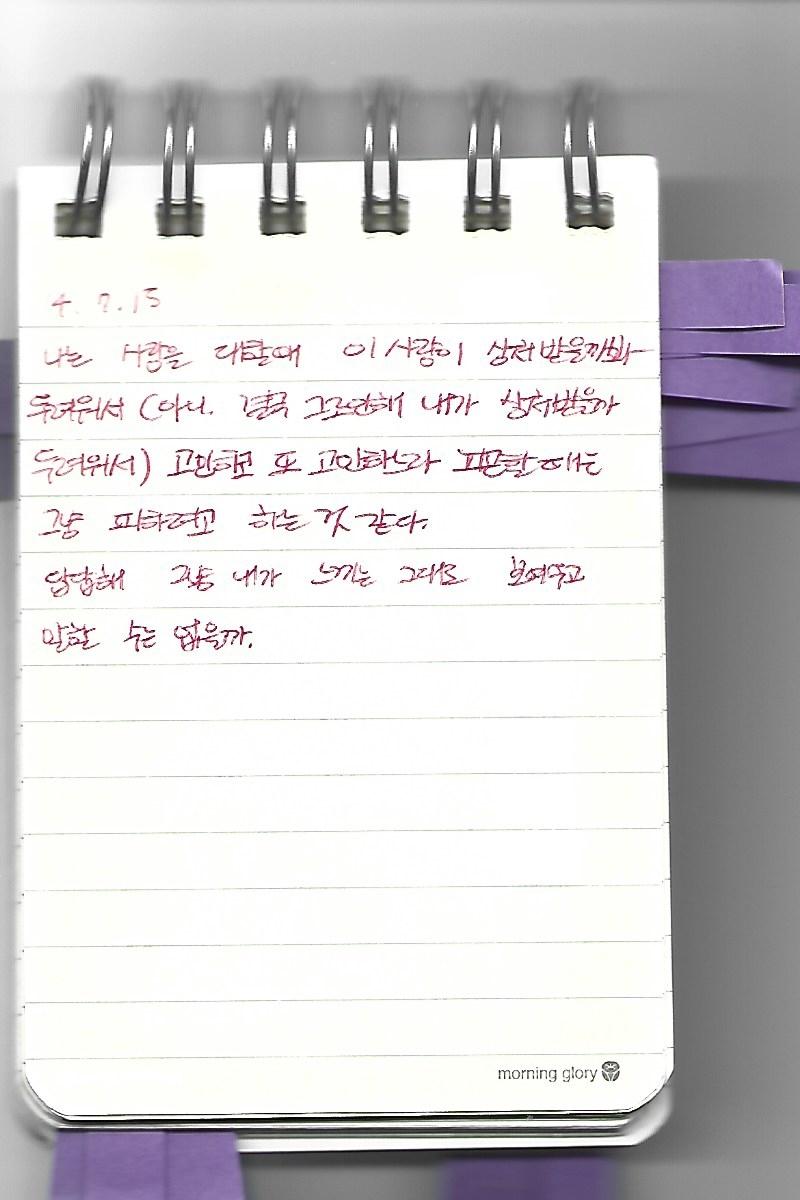 4. 7. 15
나는 사람을 대할때 이 사람이 상처받을까봐
두려워서 (아니. 결국 그로인해 내가 상처받을까
두려워서) 고민하고 또 고민하느라 피곤할 때는
그냥 피하려고 하는 것 같다.
답답해 그냥 내가 느끼는 그대로 보여주고
말할 수는 없을까.
morning glory